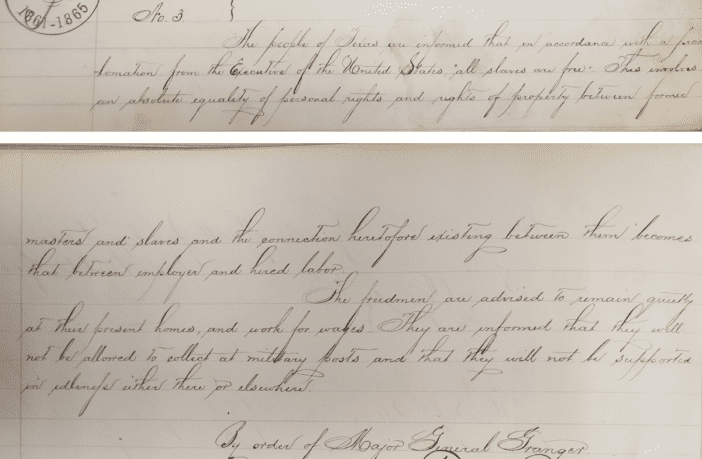 1861-1865
No. 3.
The people of Texas are informed that in accordance with a proc
lamation from the Executive of the United States, "all slaves are free." This involves
an absolute equality of personal rights and rights of property between former
masters and slaves and the connection heretofore existing between them becomes
that between employer and hired labor.
The freedmen are advised to remain quietly
at their present homes, and work for wages. They are informed that they will
not be allowed to collect at military posts and that they will not be supported
in idleness either there or elsewhere.
By order of Major General Granger